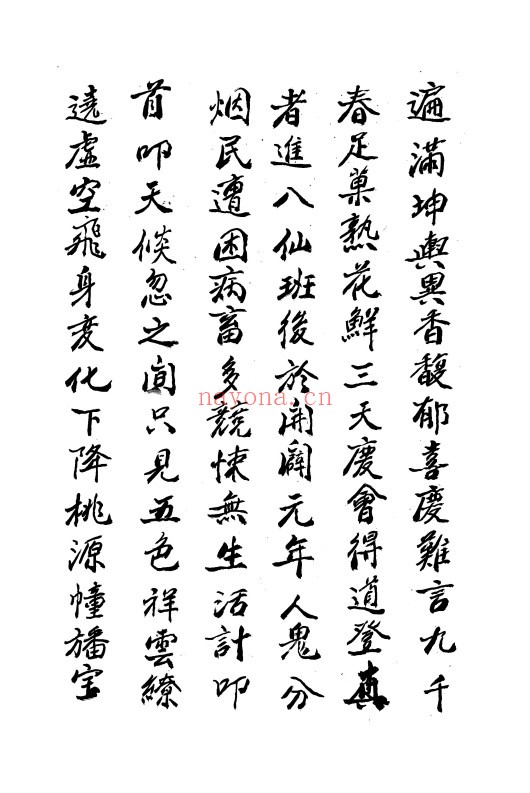 遍滿坤輿異香馥郁喜慶難言九千
春足菓熟花鮮三天慶會得道登真
者進八仙班後於開闢元年人鬼分
烟民遭困病畜多競悚無生活計叩
首叩天倐忽之间只見五色祥雲繚
遶虛空飛身変化下降桃源幢旛宝
nayona.cn